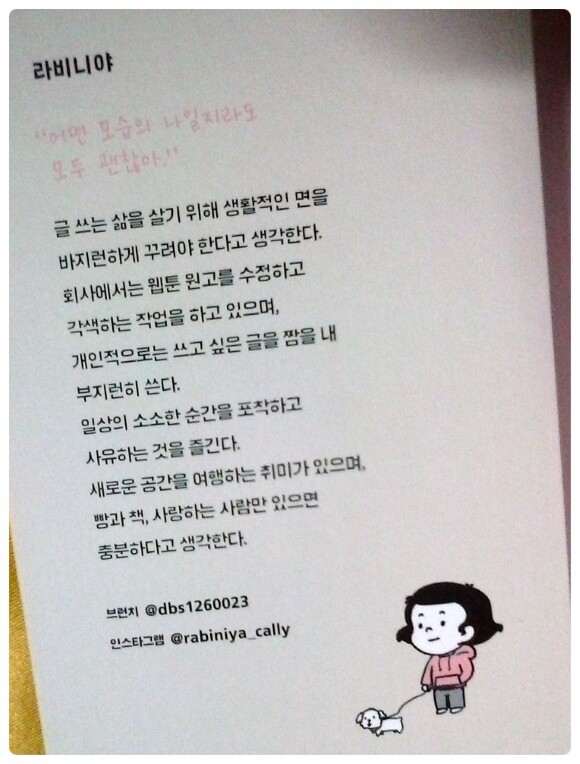 라비니야
"어떤 모습의 나일지라도
모두 괜찮아."
글 쓰는 삶을 살기 위해 생활적인 면을
바지런하게 꾸려야 한다고 생각한다.
회사에서는 웹툰 원고를 수정하고
각색하는 작업을 하고 있으며,
개인적으로는 쓰고 싶은 글을 짬을 내
부지런히 쓴다.
일상의 소소한 순간을 포착하고
사유하는 것을 즐긴다.
새로운 공간을 여행하는 취미가 있으며,
빵과 책, 사랑하는 사람만 있으면
충분하다고 생각한다.
브런치 @dbs1260023
인스타그램 @rabiniya_cally